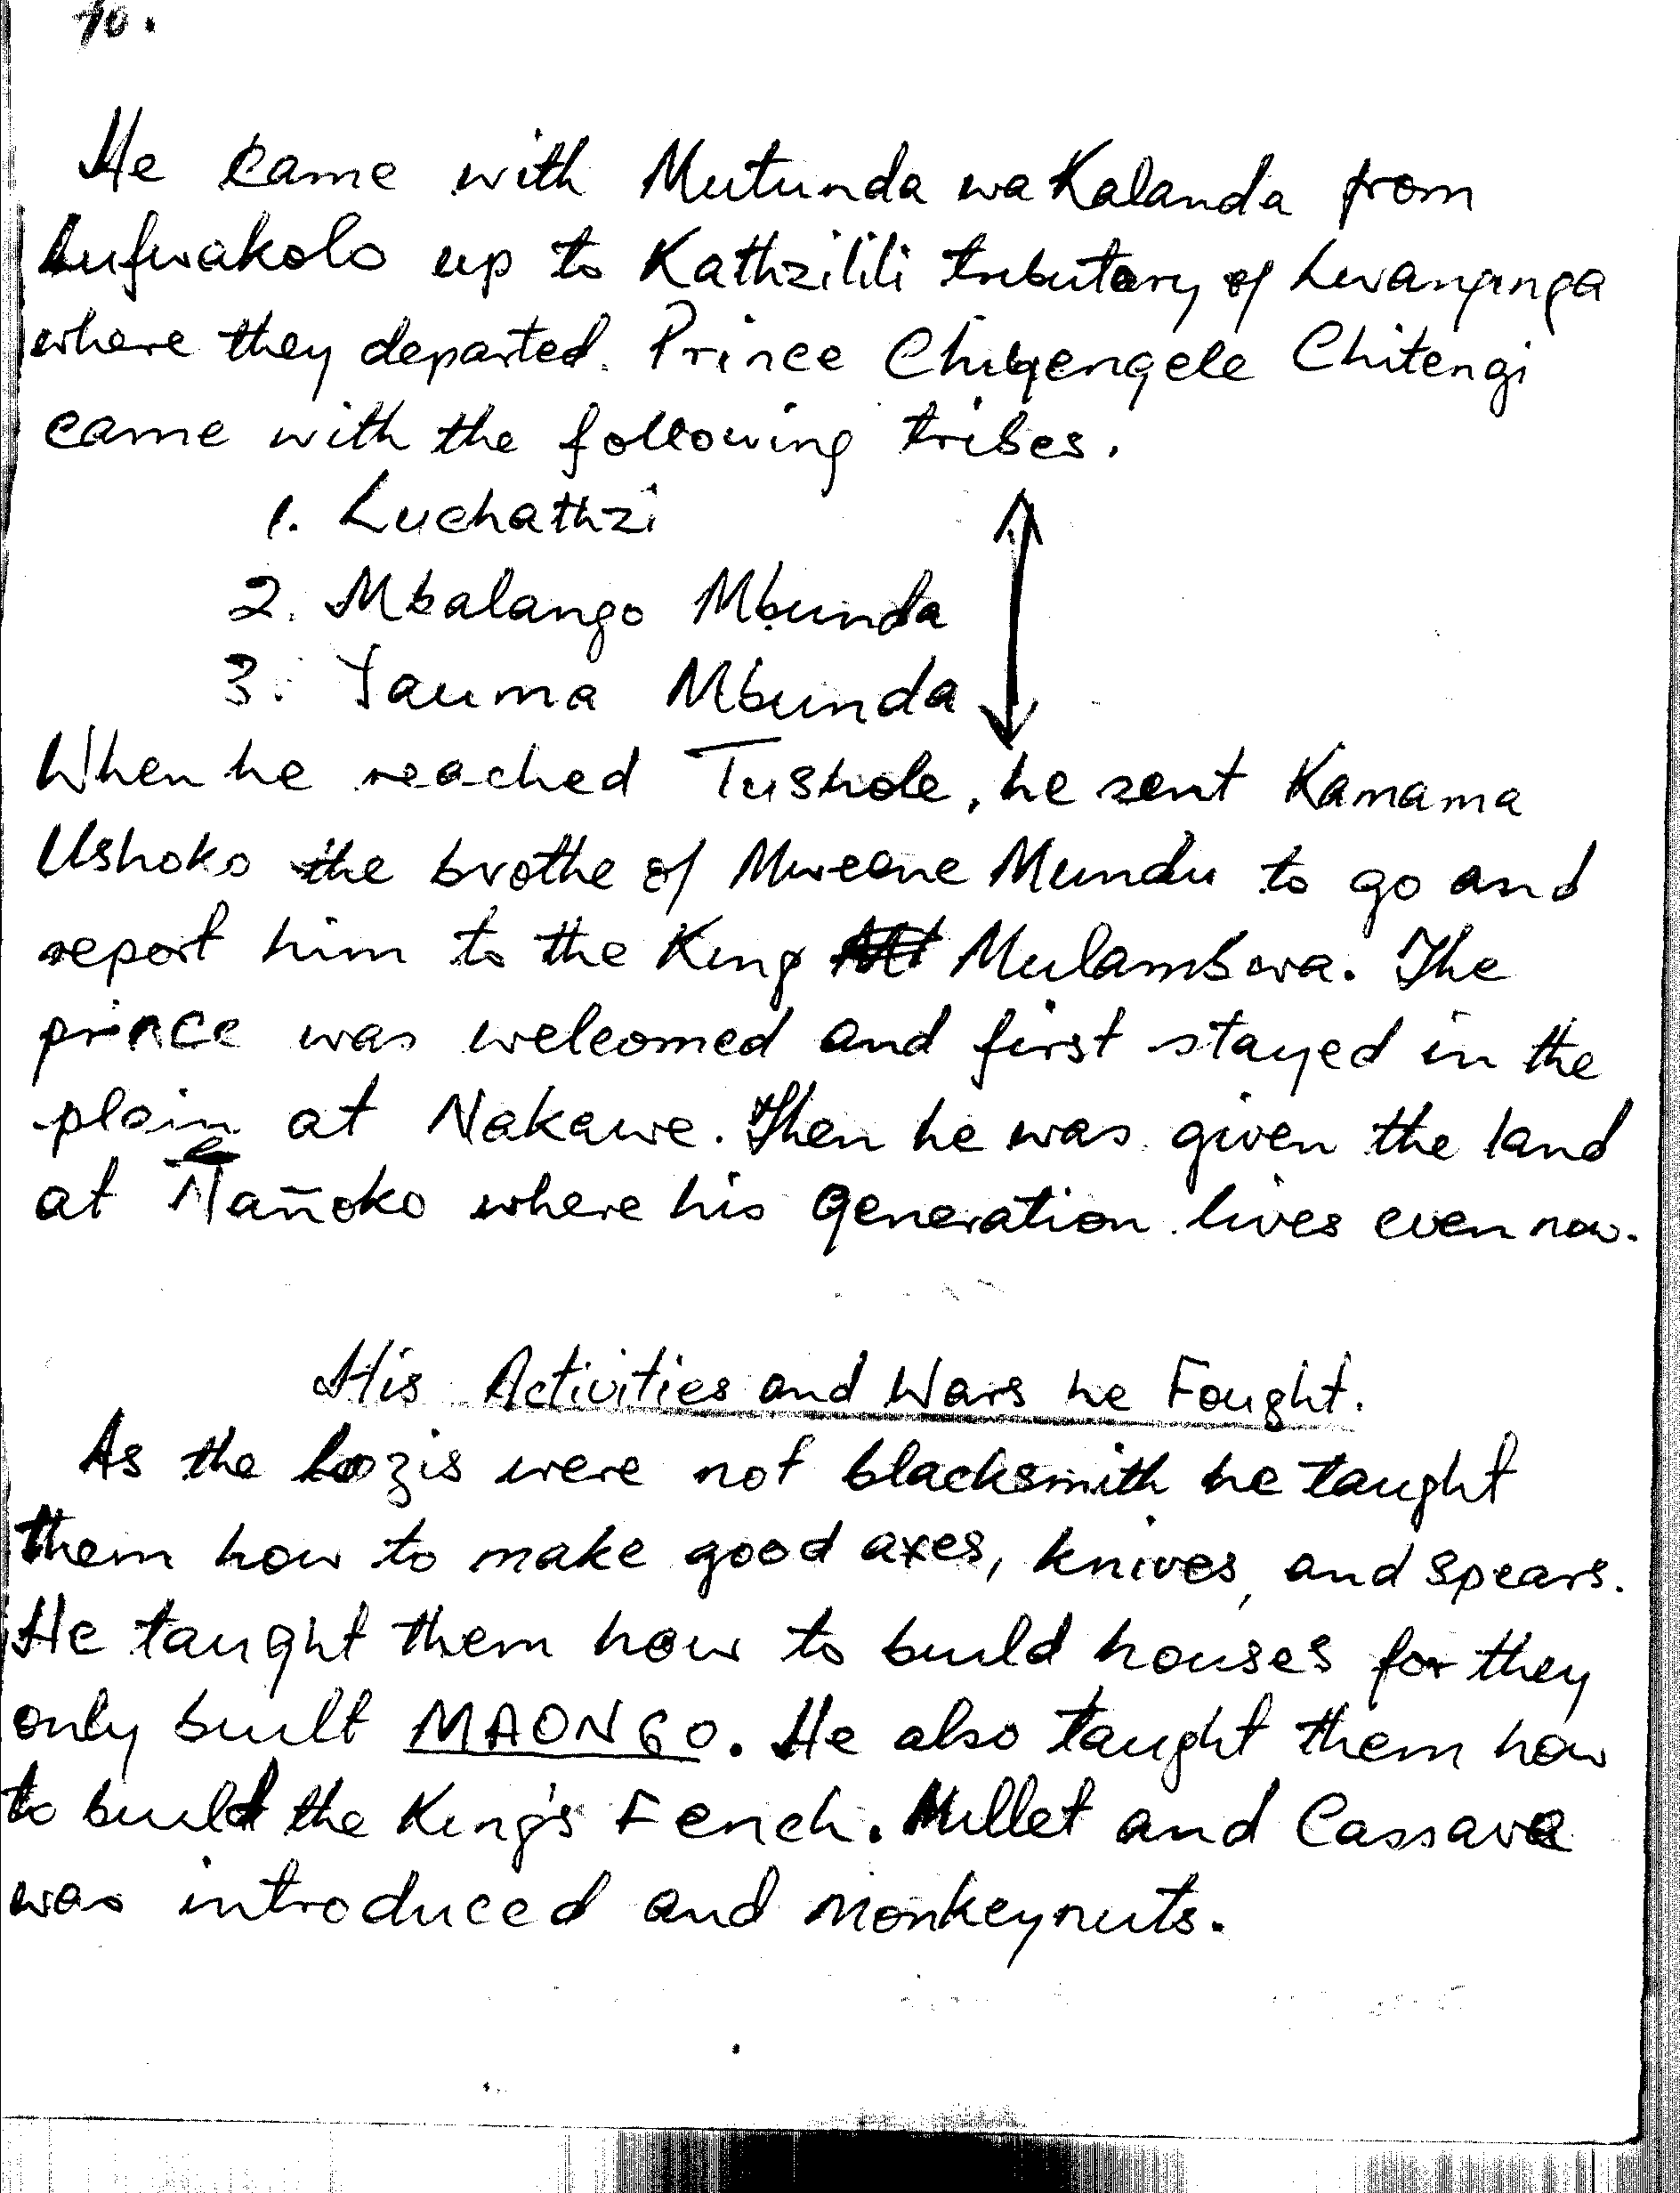 10.
He came with Mutunda wa Kalanda from
Lufwakolo up to Kathzilili tributary of Lwanginga
where they departed. Prince Chiyengele Chitengi
came with the following tribes.
1. Luchathzi
2. Mbalango Mbunda
3. Yauma Mbunda
When he reached Tushole, he sent Kamama
Ushoko the brothe of Mweene Mundu to go and
report him to the King Mulambwa. The
prince was welcomed and first stayed in the
plain at Nakawe. Then he was given the land
at Nañoko where his generation lives even now.
His Activities and Wars he Fought.
As the Lozis were not blacksmith he taught
them how to make good axes, knives, and spears.
He taught them how to build houses for they
only built MAONGO. He also taught them how
to build the King's Fench. Millet and Cassava
was introduced and monkeynuts.